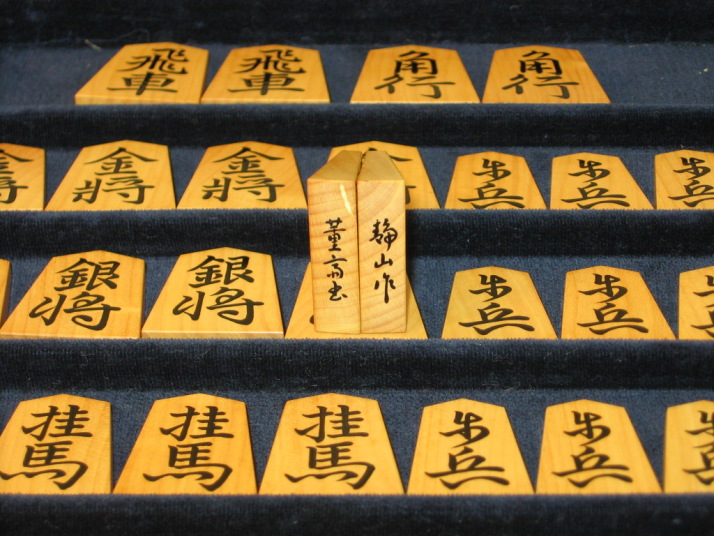 飛車 飛車 角行 角行
金将 金将 金将 歩兵 歩兵 歩兵
董斎書
静山作
銀将 銀将 歩兵 歩兵 歩兵
桂馬 桂馬 桂馬 歩兵 歩兵 歩兵